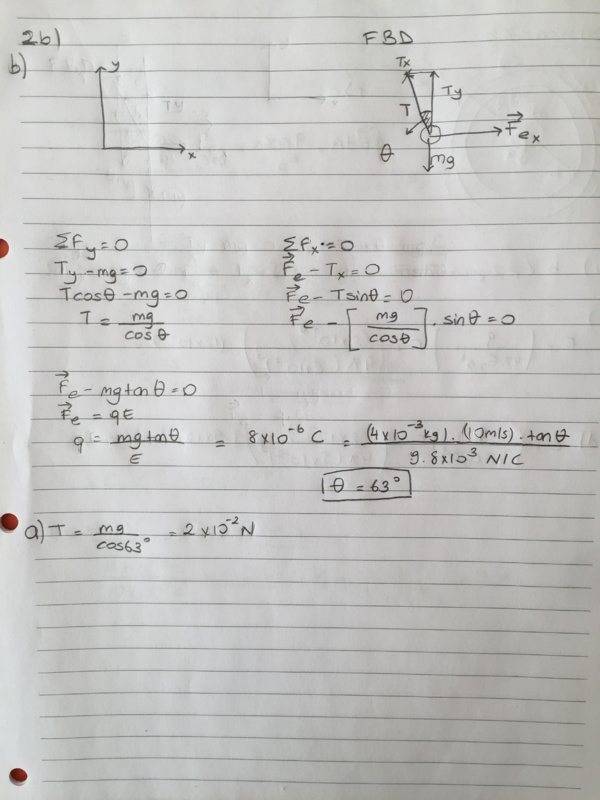 2b)
FBD
b)
y
x
Tx
Ty
T
θ
F⃗ex
mg
ΣFy = 0
Ty - mg = 0
Tcosθ - mg = 0
T = mg/cosθ
ΣFx = 0
F⃗e - Tx = 0
F⃗e - Tsinθ = 0
F⃗e - [mg/cosθ] · sinθ = 0
F⃗e - mgtanθ = 0
F⃗e = qE
q = mgtanθ/E = 8×10⁻⁶ C = (4×10⁻³ kg) · (10m/s) · tanθ / 9.8×10³ N/C
θ = 63°
a) T = mg/cos63° = 2×10⁻² N